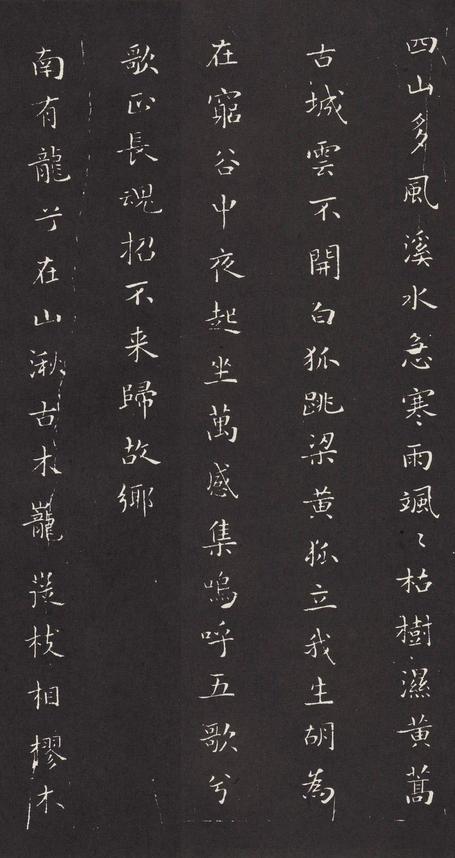 四山多風溪水急寒雨颯〻枯樹濕黃蒿
古城雲不開白狐跳梁黃狐立我生胡為
在窮谷中夜起坐萬感集嗚呼五歌兮
歌正長魂招不来歸故鄉
南有龍兮在山湫古木巃嵸枝相樛木